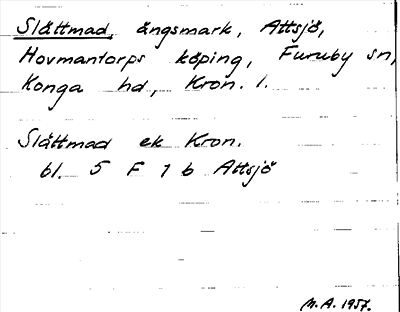 Slåttmad, ängsmark, Attsjö,
Hovmantorps köping, Furuby sn,
Konga hd, Kron. l.
Slåttmad ek Kron.
bl. 5 F 1 b Attsjö
M.A. 1957.